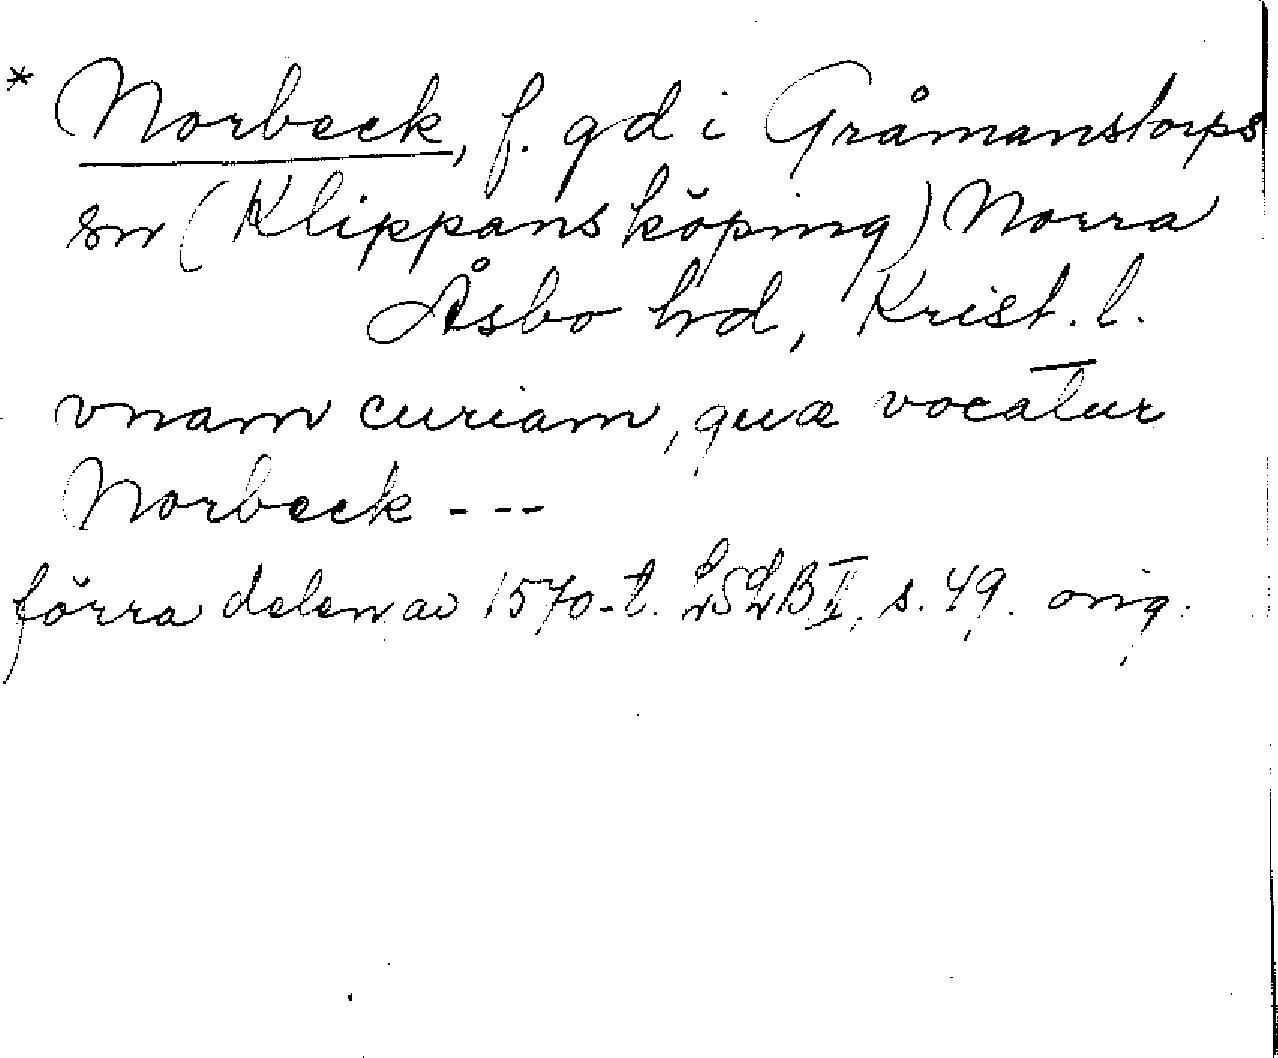 * Norbeck, f. gd i Gråmanstorps
sn (Klippans köping) Norra
Åsbo hd, Krist. l.
vnam curiam, quæ vocatur
Norbeck - - -
förra delen av 1570-t. LSLB II, s. 49. orig.